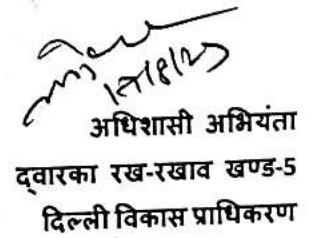 अधिशासी अभियंता
द्वारका रख-रखाव खण्ड-5
दिल्ली विकास प्राधिकरण